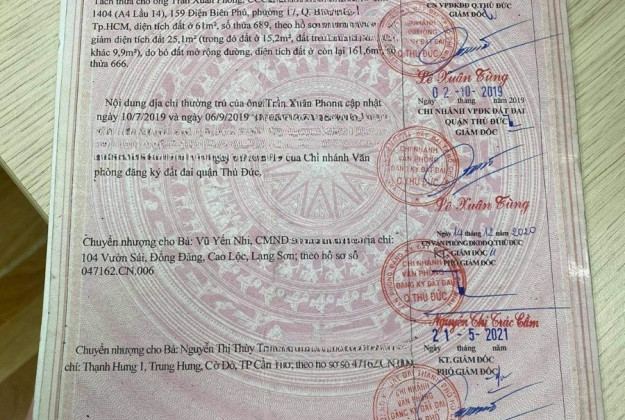 Tách thửa cho ông Trần Xuân Phong,
1404 (A4 Lầu 14), 159 Điện Biên Phủ, phường 17, Q.
Tp.HCM, diện tích đất ở 61m², số thửa 689, theo hồ sơ
giảm diện tích đất 25,1m² (trong đó đất ở 15,2m², đất
khác 9,9m²), do bỏ đất mở rộng đường, diện tích đất ở còn lại 161,6m², số
thửa 666.
CN VPĐKĐĐ Q.THỦ ĐỨC
GIÁM ĐỐC
Q. THỦ ĐỨC
Lê Xuân Tùng
02-10-2019
Nội dung địa chỉ thường trú của ông Trần Xuân Phong cập nhật
ngày 10/7/2019 và ngày 06/9/2019
của Chi nhánh Văn
phòng đăng ký đất đai quận Thủ Đức.
Ngày tháng năm 2019
CHI NHÁNH VPĐK ĐẤT ĐAI
QUẬN THỦ ĐỨC
GIÁM ĐỐC
CHI NHÁNH
VĂN PHÒNG
ĐĂNG KÝ ĐẤT ĐAI
Q.THỦ ĐỨC
Lê Xuân Tùng
Chuyển nhượng cho Bà: Vũ Yến Nhi, CMND địa chỉ:
104 Vườn Sái, Đồng Đăng, Cao Lộc, Lạng Sơn; theo hồ sơ số
047162.CN.006
Ngày 14 tháng 12 năm 2020
CN VĂN PHÒNG ĐKĐĐ Q.THỦ ĐỨC
KT. GIÁM ĐỐC
PHÓ GIÁM ĐỐC
CHI NHÁNH
VĂN PHÒNG
ĐĂNG KÝ ĐẤT ĐAI
Q.THỦ ĐỨC
Nguyễn Thị Trúc Cầm
Chuyển nhượng cho Bà: Nguyễn Thị Thùy
chỉ: Thạnh Hưng 1, Trung Hưng, Cờ Đỏ, TP Cần Thơ; theo hồ sơ số 47162.CN.009
21-5-2021
Ngày tháng năm
KT. GIÁM ĐỐC
PHÓ GIÁM ĐỐC
CHI NHÁNH
VĂN PHÒNG
ĐĂNG KÝ ĐẤT ĐAI